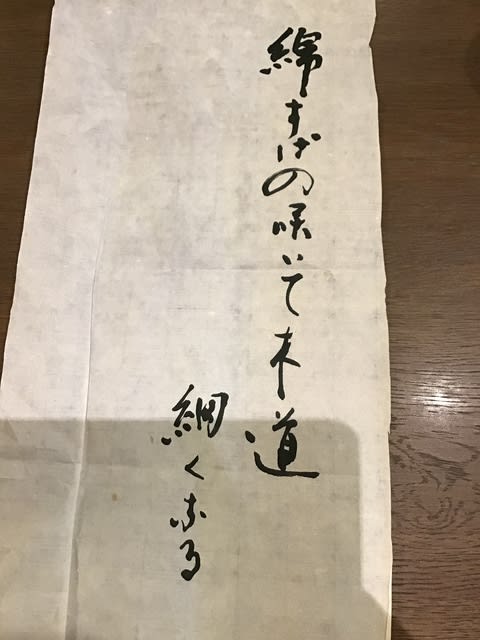 綿すげの咲いて木道
細くなる